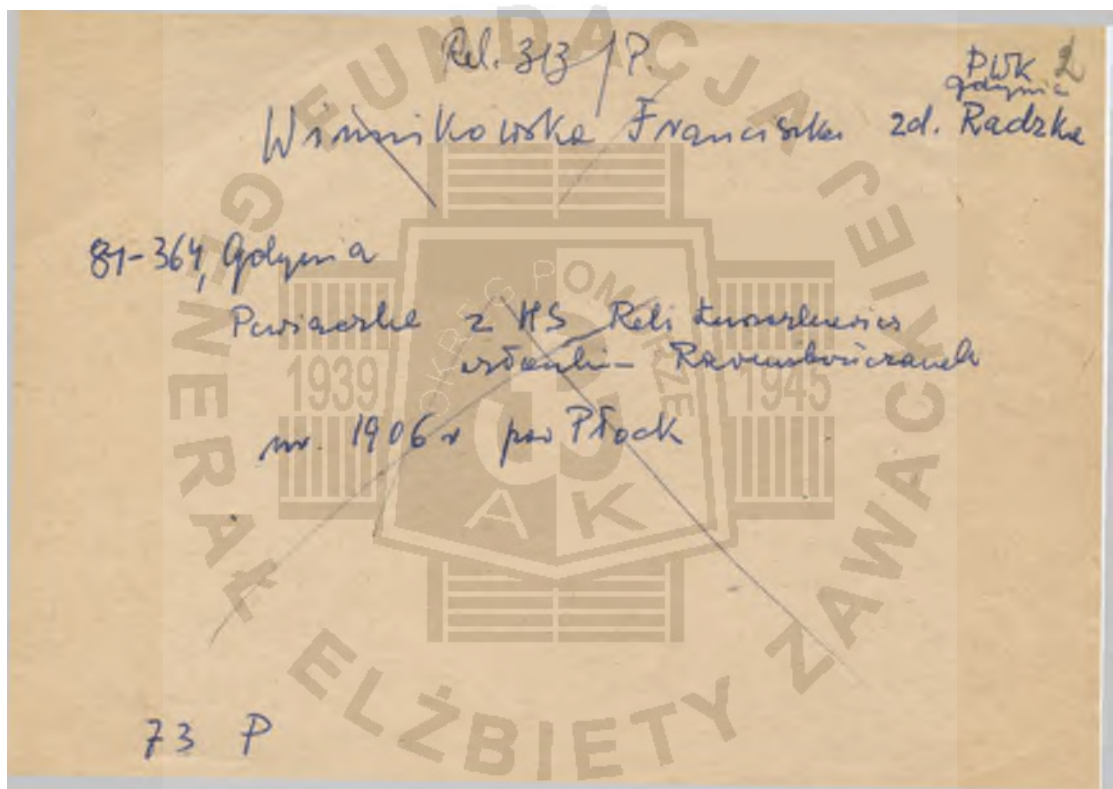 Rel. 313/P.
PWK 2
Gdynia
Winnikowska Franciszka zd. Radzka
81-364, Gdynia
Pawiaczka z
ur. 1906 r pow Płock
73 P
FUNDACJA GENERAŁ ELŻBIETY ZAWACKIEJ
OKRĘG POMORZE
1939 1945
AK